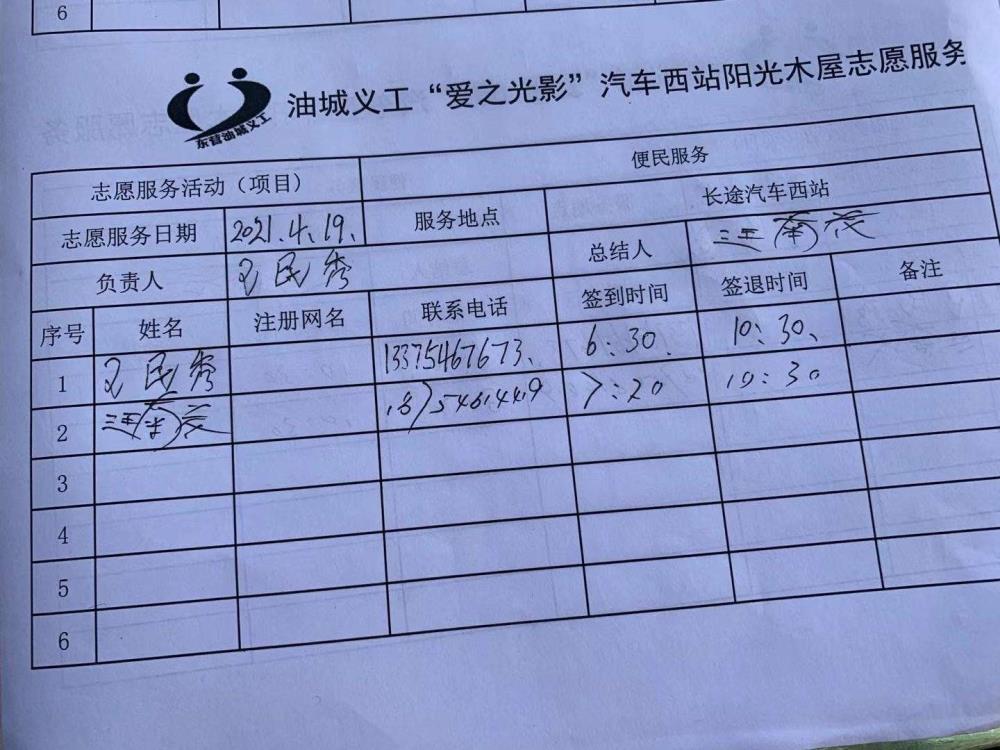 6
东营油城义工
油城义工“爱之光影”汽车西站阳光木屋志愿服务
志愿服务活动（项目） 便民服务
志愿服务日期 2021.4.19. 服务地点 长途汽车西站
负责人 民秀 总结人
序号 姓名 注册网名 联系电话 签到时间 签退时间 备注
1 民秀 13375467673. 6:30. 10:30.
2 7:20 10:30
3
4
5
6